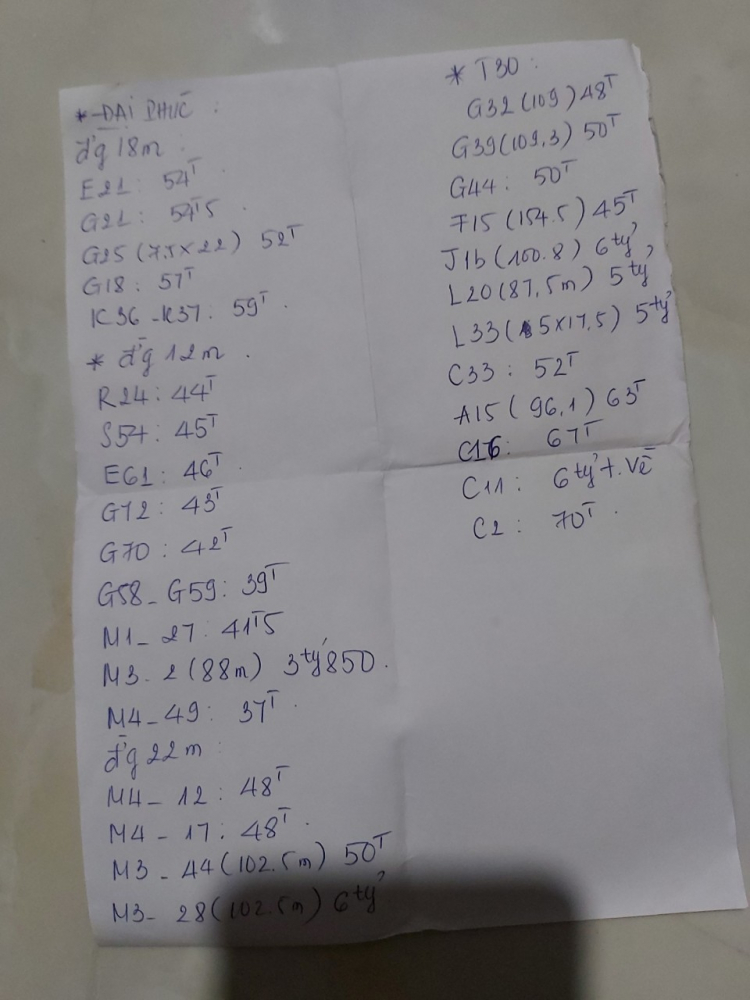 * ĐẠI PHÚC :
đ'g 18m .
E21 : 54T
G21 : 54T5 .
G25 (7.5 x 22) 52T
G18 : 57T
K36 - K37 : 59T .
* đ'g 12m .
R24 : 44T
S54 : 45T
E61 : 46T .
G72 : 43T
G70 : 42T
G58 - G59 : 39T
M1 - 27 : 41T5
M3 - 2 (88m) 3 tỷ 850 .
M4 - 49 : 37T .
đ'g 22m :
M4 - 12 : 48T
M4 - 17 : 48T .
M3 - 44 (102.5m) 50T
M3 - 28 (102.5m) 6 tỷ
* T30 :
G32 (109) 48T
G39 (109,3) 50T
G44 : 50T
F15 (154.5) 45T
J16 (100.8) 6 tỷ
L20 (87,5m) 5 tỷ
L33 (5 x 17,5) 5 tỷ
C33 : 52T
A15 (96,1) 63T
C16 : 67T
C11 : 6 tỷ + . Về
C2 : 70T .